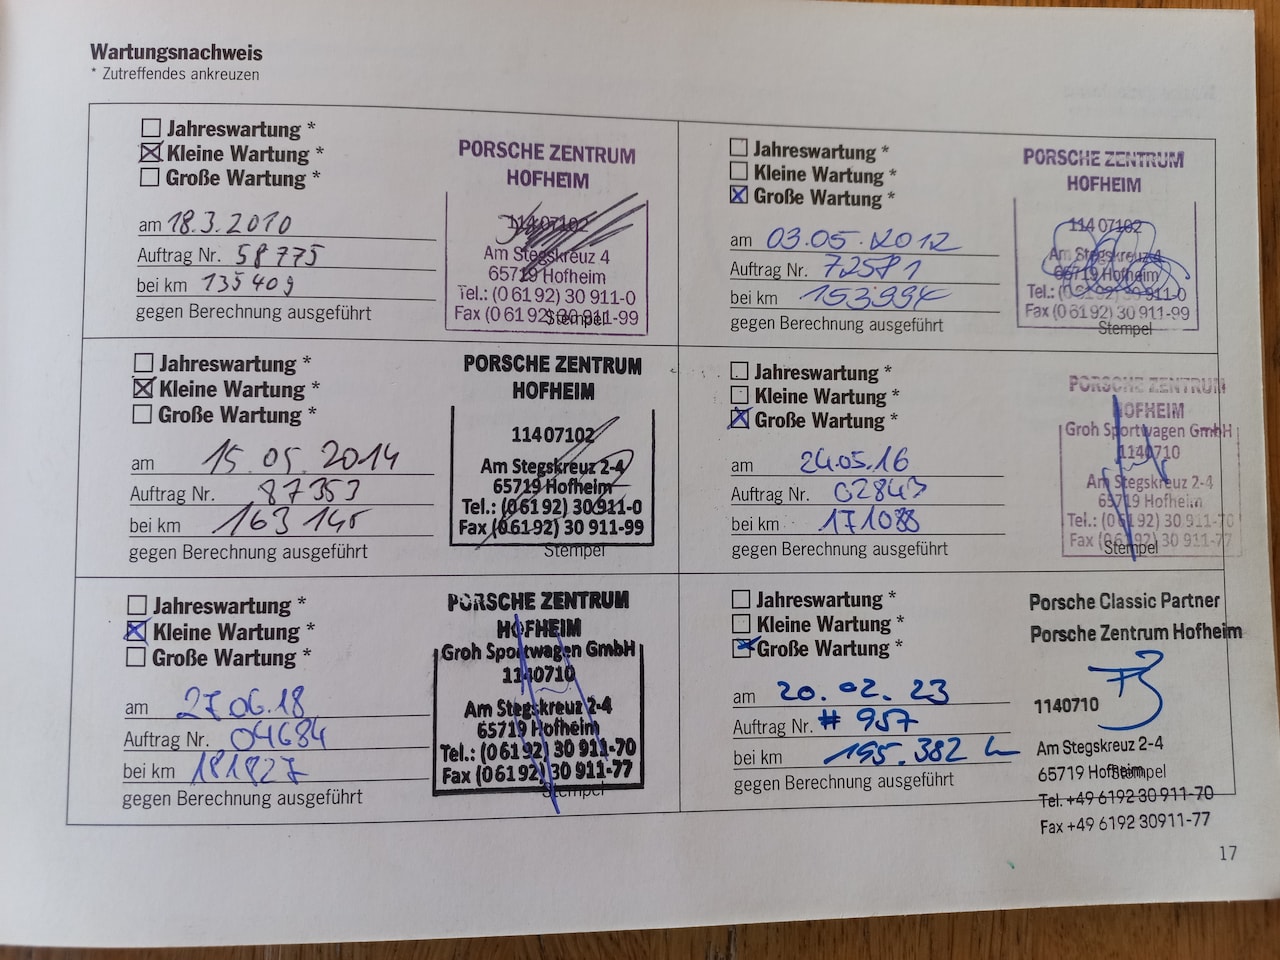 Wartungsnachweis
* Zutreffendes ankreuzen
Jahreswartung *
Kleine Wartung *
Große Wartung *
am 18.3.2010
Auftrag Nr. 58775
bei km 135409
gegen Berechnung ausgeführt
PORSCHE ZENTRUM
HOFHEIM
11407102
Am Stegskreuz 4
65719 Hofheim
Tel.: (06192) 30 911-0
Fax (06192) 30 911-99
Stempel
Jahreswartung *
Kleine Wartung *
Große Wartung *
am 03.05.2012
Auftrag Nr. 72581
bei km 153994
gegen Berechnung ausgeführt
PORSCHE ZENTRUM
HOFHEIM
11407102
Am Stegskreuz 4
65719 Hofheim
Tel.: (06192) 30 911-0
Fax (06192) 30 911-99
Stempel
Jahreswartung *
Kleine Wartung *
Große Wartung *
am 15.05.2014
Auftrag Nr. 87353
bei km 163145
gegen Berechnung ausgeführt
PORSCHE ZENTRUM
HOFHEIM
11407102
Am Stegskreuz 2-4
65719 Hofheim
Tel.: (06192) 30 911-0
Fax (06192) 30 911-99
Stempel
Jahreswartung *
Kleine Wartung *
Große Wartung *
am 24.05.16
Auftrag Nr. 02843
bei km 171088
gegen Berechnung ausgeführt
PORSCHE ZENTRUM
HOFHEIM
Groh Sportwagen GmbH
1140710
Am Stegskreuz 2-4
65719 Hofheim
Tel.: (06192) 30 911-70
Fax (06192) 30 911-77
Stempel
Jahreswartung *
Kleine Wartung *
Große Wartung *
am 27.06.18
Auftrag Nr. 04684
bei km 181827
gegen Berechnung ausgeführt
PORSCHE ZENTRUM
HOFHEIM
Groh Sportwagen GmbH
1140710
Am Stegskreuz 2-4
65719 Hofheim
Tel.: (06192) 30 911-70
Fax (06192) 30 911-77
Stempel
Jahreswartung *
Kleine Wartung *
Große Wartung *
am 20.02.23
Auftrag Nr. # 957
bei km 195.382
gegen Berechnung ausgeführt
Porsche Classic Partner
Porsche Zentrum Hofheim
1140710
Am Stegskreuz 2-4
65719 Hofheim
Stempel
Tel. +49 6192 30 911-70
Fax +49 6192 30911-77
17